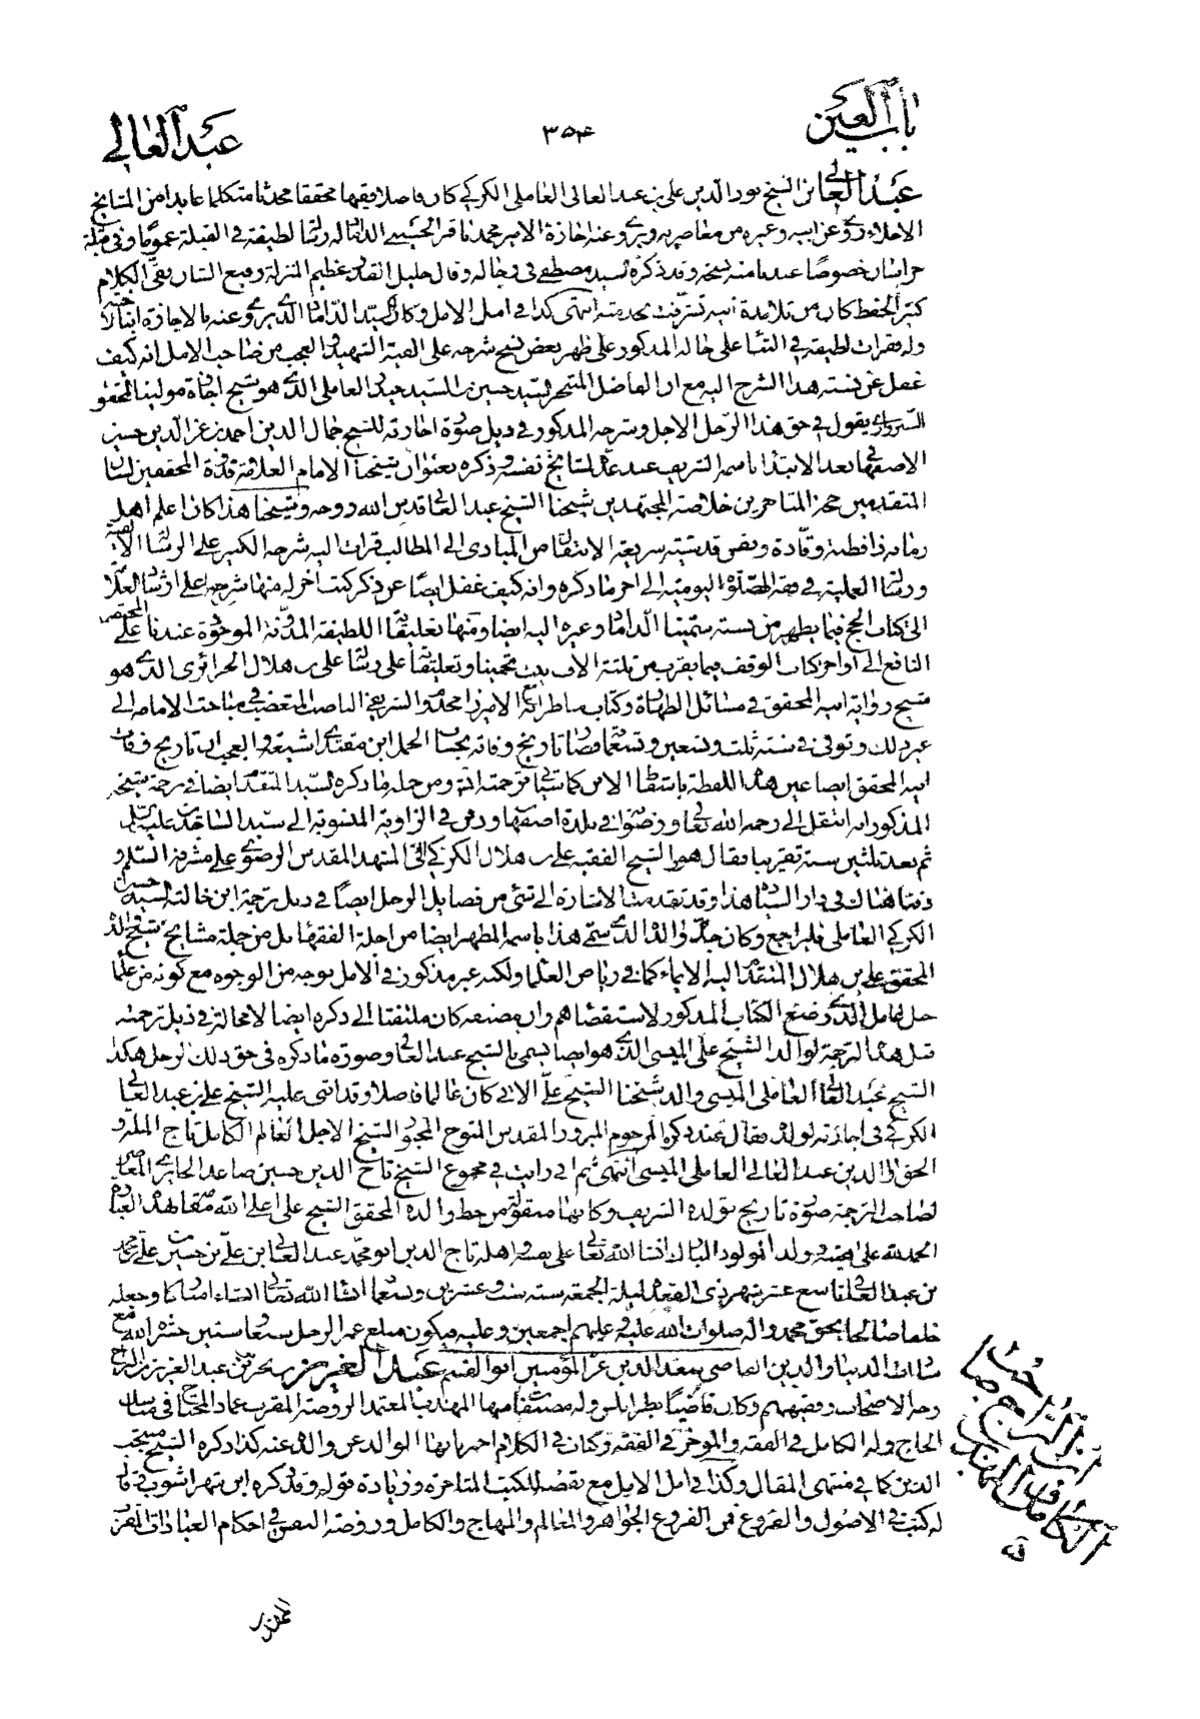 باب العين
۳۵۴
عبد العالي
عبد العالي بن الشيخ نور الدين علي بن عبد العالي العاملي الكركي كان فاضلا فقيها محققا محدثا متكلما عابدا من المشايخ
الاجلاء روى عن ابيه وغيره من معاصريه ويروي عنه اجازة الامير محمد باقر الحسيني الداماد له رسالة لطيفة في القبلة عموما وفي قبلة
خراسان خصوصا عندنا منه نسخة وقد ذكره السيد مصطفى في رجاله وقال جليل القدر عظيم المنزلة رفيع الشان نقي الكلام
كثير الحفظ كان من تلامذة ابيه تشرفت بخدمته انتهى كذا في امل الامل وكان السيد الداماد الذي يروي عنه بالاجازة ابن اخته
وله فقرات لطيفة في الثناء على خاله المذكور على ظهر بعض نسخ شرحه على الفية الشهيد والعجب من صاحب الامل انه كيف
غفل عن نسبة هذا الشرح اليه مع ان الفاضل المتبحر السيد حسين بن السيد حيدر العاملي الذي هو شيخ اجازة مولينا المحقق
السبزواري يقول في حق هذا الرجل الاجل وشرحه المذكور في ذيل صورة اجازته للشيخ جمال الدين احمد بن عز الدين حسين
الاصفهاني بعد الابتداء باسمه الشريف عند عد مشايخ نفسه وذكره بعنوان شيخنا الامام العلامة قدوة المحققين لسان
المتقدمين حجة المتاخرين خلاصة المجتهدين شيخنا الشيخ عبد العالي قدس الله روحه وشيخنا هذا كان اعلم اهل
زمانه ذا فطنة وقادة ونفس قدسية سريعة الانتقال من المبادي الى المطالب قرات اليه شرحه الكبير على الرسالة الالفية
ورسالته العملية في فقه الصلوة اليومية الى اخر ما ذكره وانه كيف غفل ايضا عن ذكر كتب اخر له منها شرحه على ارشاد العلامة
الى كتاب الحج فيما يظهر من نسبة سميّنا الداماد وغيره اليه ايضا ومنها تعليقاته اللطيفة المدونة الموجودة عندنا على المختصر
النافع الى اواخر كتاب الوقف فيما يقرب من ثلثة الاف بيت تخمينا وتعليقاته على رسالة علي بن هلال الجزائري الذي هو
شيخ رواية ابيه المحقق في مسائل الطهارة وكتاب مناظراته مع الاميرزا محمد مخدوم الشريفي الناصب المتعصب في مباحث الامامة الى
غير ذلك وتوفي في سنة ثلث وتسعين وتسعمائة فصار تاريخ وفاته بحساب الجمل ابن مقتداي شيعة والعجب ان تاريخ وفات
ابيه المحقق ايضا عين هذا اللفظة باسقاط الابن كما سياتي في ترجمته انش ومن جملة ما ذكره السيد المتقدم ايضا في ترجمة شيخه
المذكور انه انتقل الى رحمة الله تعالى ورضوانه في بلدة اصفهان ودفن في الزاوية المنسوبة الى سيد الساجدين عليه السلم
ثم بعد ثلثين سنة تقريبا نقل هو والشيخ الفقيه علي بن هلال الكركي الى المشهد المقدس الرضوي على مشرفه السلم و
دفنا هناك في دار السيادة هذا وقد تقدمت الاشارة الى شيء من فضايل الرجل ايضا في ذيل ترجمة ابن خالته السيد حسين
الكركي العاملي فليراجع وكان جد والد الذي سمي هذا باسمه المطهر ايضا من اجلة الفقهاء بل من جملة مشايخ شيخ والده
المحقق علي بن هلال المتقدم اليه الايماء كما في رياض العلماء ولكنه غير مذكور في الامل بوجه من الوجوه مع كونه من علماء
جبل عامل الذي وضع الكتاب المذكور لاستقصائهم وان مصنفه كان ملتفتا الى ذكره ايضا لا محالة في ذيل ترجمته
قبل هذه الترجمة لوالد الشيخ علي الميسي الذي هو ايضا يسمى بالشيخ عبد العالي وصورة ما ذكره في حق ذلك الرجل هكذا
الشيخ عبد العالي العاملي الميسي والد شيخنا الشيخ علي الاتي كان عالما فاضلا وقد اثنى عليه الشيخ علي بن عبد العالي
الكركي في اجازته لولده فقال عند ذكره المرحوم المبرور المقدس المتوج المحبور الشيخ الاجل العالم الكامل تاج الملة و
الحق والدين عبد العالي العاملي الميسي انتهى ثم اني رايت في مجموع الشيخ تاج الدين حسين صاعد الحايري المعاصر
لصاحب الترجمة صورة تاريخ تولده الشريف وكانها منقولة من خط والده المحقق الشيخ علي اعلى الله مقامه هذه العبارة
الحمد لله على هبته ولد المولود المبارك انشاء الله تعالى على نفسه واهله تاج الدين ابو محمد عبد العالي ابن علي بن حسين بن علي بن محمد
بن عبد العالي تاسع عشر شهر ذي القعدة ليلة الجمعة سنة ست وعشرين وتسعمائة انشاه الله تعالى انشاء مباركا وجعله
خلفا صالحا بحق محمد واله صلوات الله عليه وعليهم اجمعين وعليه فيكون مبلغ عمر الرجل سبعا وستين حشره الله مع
سادات الدنيا والدين القاضي سعد الدين عز المؤمنين ابو القسم عبد العزيز بن نحرير بن عبد العزيز بن البراج
وجه الاصحاب وفقيههم وكان قاضيا بطرابلس وله مصنفات منها المهذب المعتمد الروضة المقرب عماد المحتاج في مناسك
الحاج وله الكامل في الفقه والموجز في الفقه وكتاب في الكلام اخبرنا بها الوالد عن والده عنه كذا ذكره الشيخ منتجب
الدين كما في منتهى المقال وكذا في امل الامل مع نقصه للكتب المتاخرة وزيادة قوله وقد ذكره ابن شهراشوب قال
له كتب في الاصول والفروع فمن الفروع الجواهر والمعالم والمنهاج والكامل وروضة النفس في احكام العبادات المقرب
المهذب
ابن البراج صاحب
الكامل والمهذب